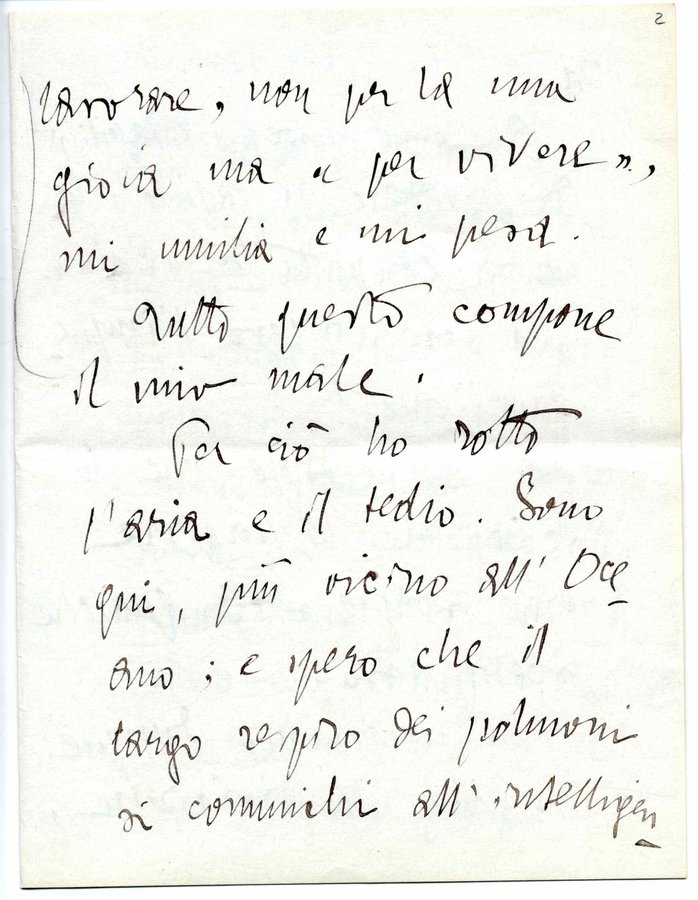 2
lavorare, non per la mia
gioia ma « per vivere »,
mi umilia e mi pesa.
Tutto questo compone
il mio male.
Per ciò ho rotto
l'aria e il tedio. Sono
qui, più vicino all' Oce
ano ; e spero che il
largo respiro dei polmoni
si comunichi all' intelligen